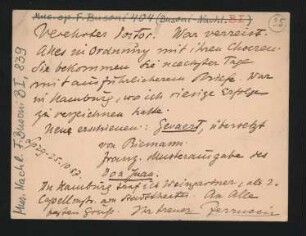 Mus. ep. F. Busoni 484 (Busoni-Nachl. BI)
95
Verehrter Doctor! War verreist.
Alles in Ordnung mit ihren Choezen.
Sie bekommen die naechsten Tage
mit ausführlicherem Briefe. War
in Hamburg, wo ich riesige Erfolge
zu verzeichnen hatte.
Neue erschienen: Gevaert, übersetzt
von Riemann.
franz. Musterausgabe des
Don Juan.
In Hamburg traf ich Weingartner, als 2.
Capellmstr. am Stadttheater. An Alle
Gruss. Ihr treuer Ferruccio
Mus. Nachl. F. Busoni BI, 839